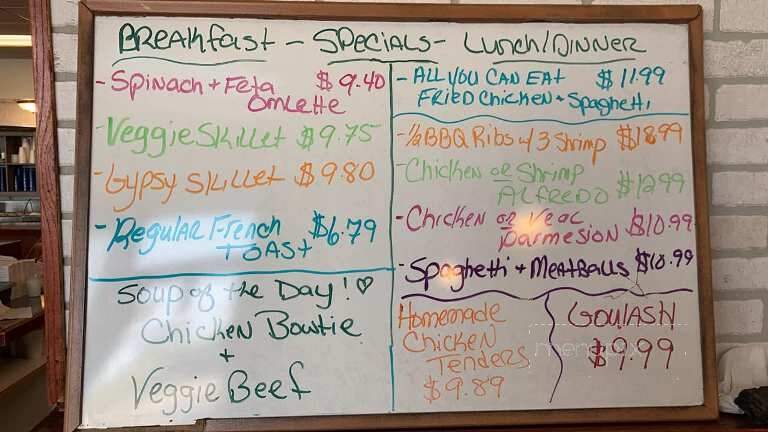 Breakfast - Specials - Lunch/Dinner
- Spinach + Feta $9.40
Omlette
- Veggie Skillet $9.75
- Gypsy Skillet $9.80
- Regular French $6.79
Toast
Soup of the Day! ♡
Chicken Bowtie
+
Veggie Beef
- All you can eat $11.99
Fried Chicken + Spaghetti
- ½ BBQ Ribs w/ 3 Shrimp $18.99
- Chicken or Shrimp
Alfredo $12.99
- Chicken or Veal
Parmesion $10.99
- Spaghetti + Meatballs $10.99
Homemade
Chicken
Tenders
$9.89
Goulash
$9.99
menupix